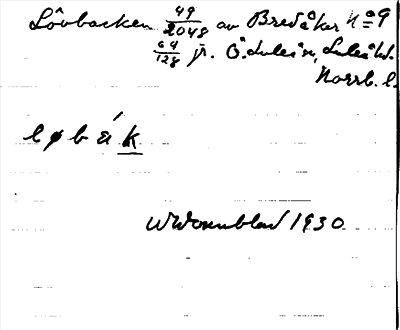 Lövbacken 49/2048 av Bredåker No 9
64/128 jr. Ö. Luleå sn, Luleå hd.
Norrb. l.
l ø b á k
1930